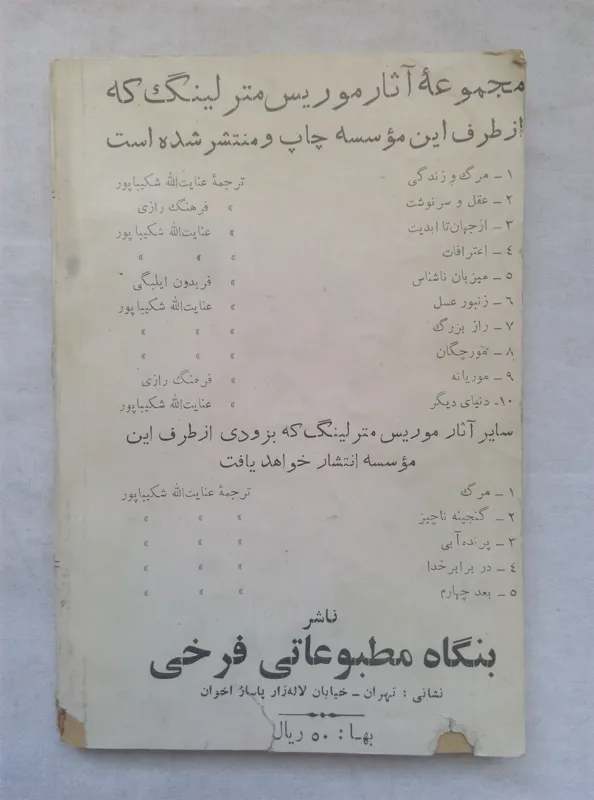 مجموعهٔ آثار موریس مترلینگ که
از طرف این مؤسسه چاپ و منتشر شده است
۱ - مرگ و زندگی ترجمهٔ عنایت‌الله شکیباپور
۲ - عقل و سرنوشت » فرهنگ رازی
۳ - از جهان تا ابدیت » عنایت‌الله شکیباپور
۴ - اعترافات » » »
۵ - میزبان ناشناس » فریدون ایلبگی
۶ - زنبور عسل » عنایت‌الله شکیباپور
۷ - راز بزرگ » » »
۸ - مورچگان » » »
۹ - موریانه » فرهنگ رازی
۱۰ - دنیای دیگر » عنایت‌الله شکیباپور
سایر آثار موریس مترلینگ که بزودی از طرف این
مؤسسه انتشار خواهد یافت
۱ - مرگ ترجمهٔ عنایت‌الله شکیباپور
۲ - گنجینه ناچیز » » »
۳ - پرنده آبی » » »
۴ - در برابر خدا » » »
۵ - بعد چهارم » » »
ناشر
بنگاه مطبوعاتی فرخی
نشانی : تهران - خیابان لاله‌زار پاساژ اخوان
بها : ۵۰ ریال